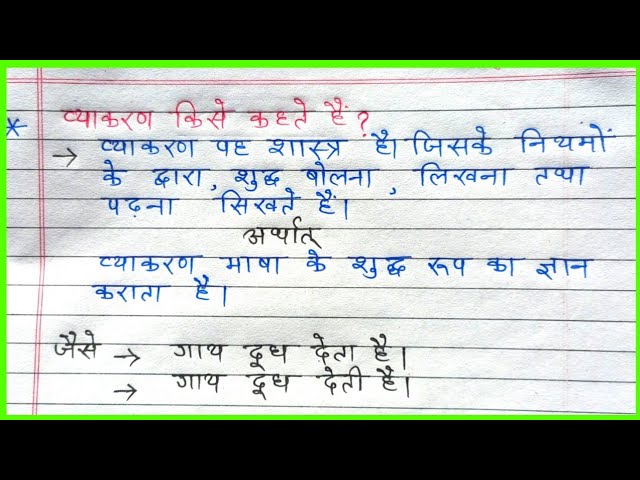 * व्याकरण किसे कहते हैं?
→ व्याकरण वह शास्त्र है। जिसके नियमों
के द्वारा, शुद्ध बोलना, लिखना तथा
पढ़ना सिखते हैं।
अर्थात्
व्याकरण भाषा के शुद्ध रूप का ज्ञान
कराता है।
जैसे → गाय दूध देता है।
→ गाय दूध देती है।